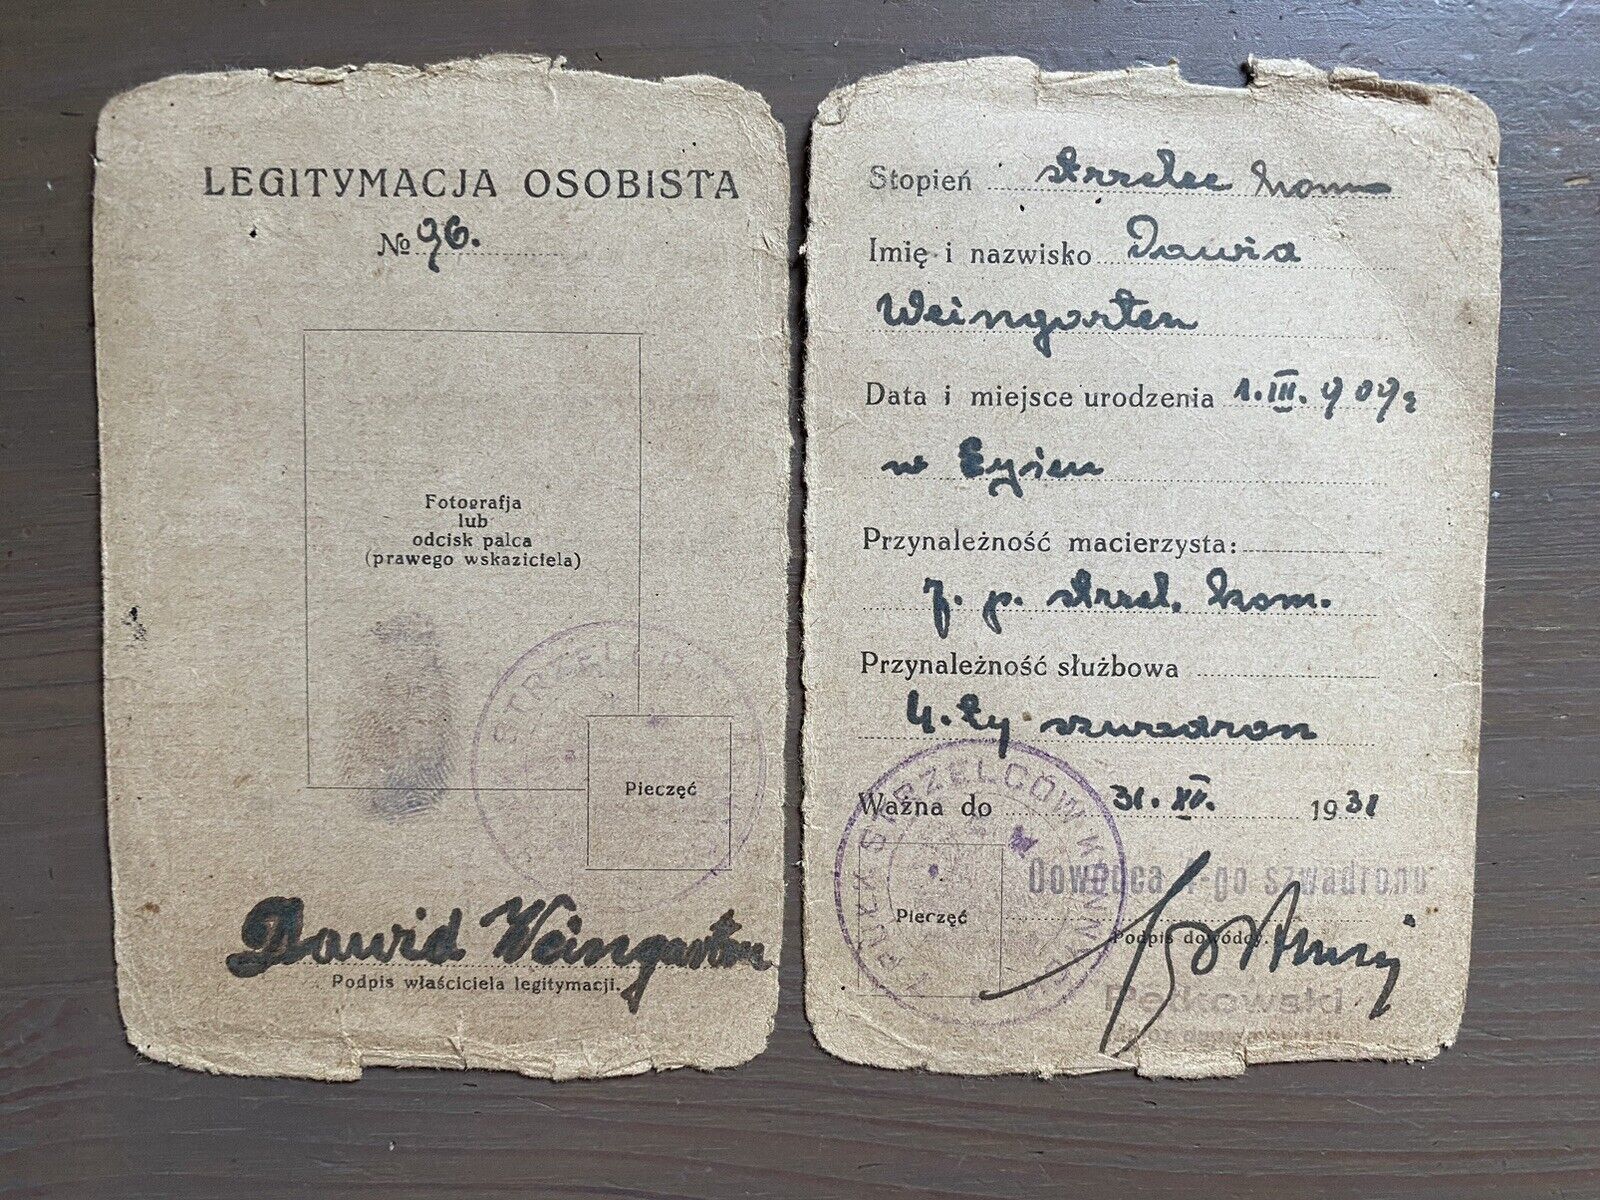 LEGITYMACJA OSOBISTA
No 96.
Fotografja
lub
odcisk palca
(prawego wskaziciela)
Pieczęć
Dawid Weingarten
Podpis właściciela legitymacji.
Stopień strzelec
Imię i nazwisko Dawid
Weingarten
Data i miejsce urodzenia 1.III.909
w
Przynależność macierzysta:
7. p. strzel. kon.
Przynależność służbowa
4-ty szwadron
Ważna do 31.XII. 1931
PUŁKU STRZELCÓW KONNYCH
Dowódca 4-go szwadronu
Pieczęć
Podpis dowódcy.
Petkowski